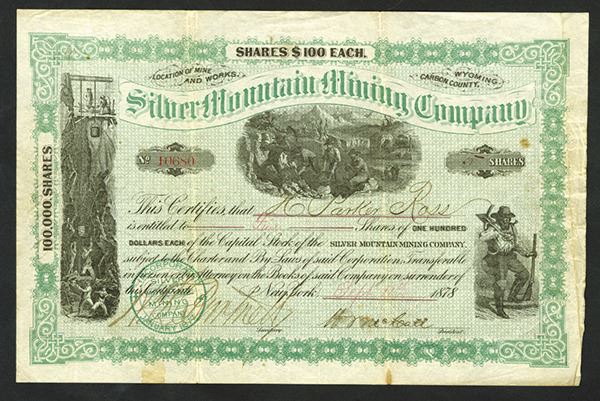 SHARES $100 EACH.
LOCATION OF MINE AND WORKS.
WYOMING CARBON COUNTY.
Silver Mountain Mining Company
100,000 SHARES
No 10680
SHARES
This Certifies, that Parker Ross
is entitled to Shares of ONE HUNDRED
DOLLARS EACH of the Capital Stock of the SILVER MOUNTAIN MINING COMPANY.
subject to the Charter and By Laws of said Corporation, Transferable
in person or by Attorney on the Books of said Company on surrender of
this Certificate
New York 1878
MINING
COMPANY
Secretary President